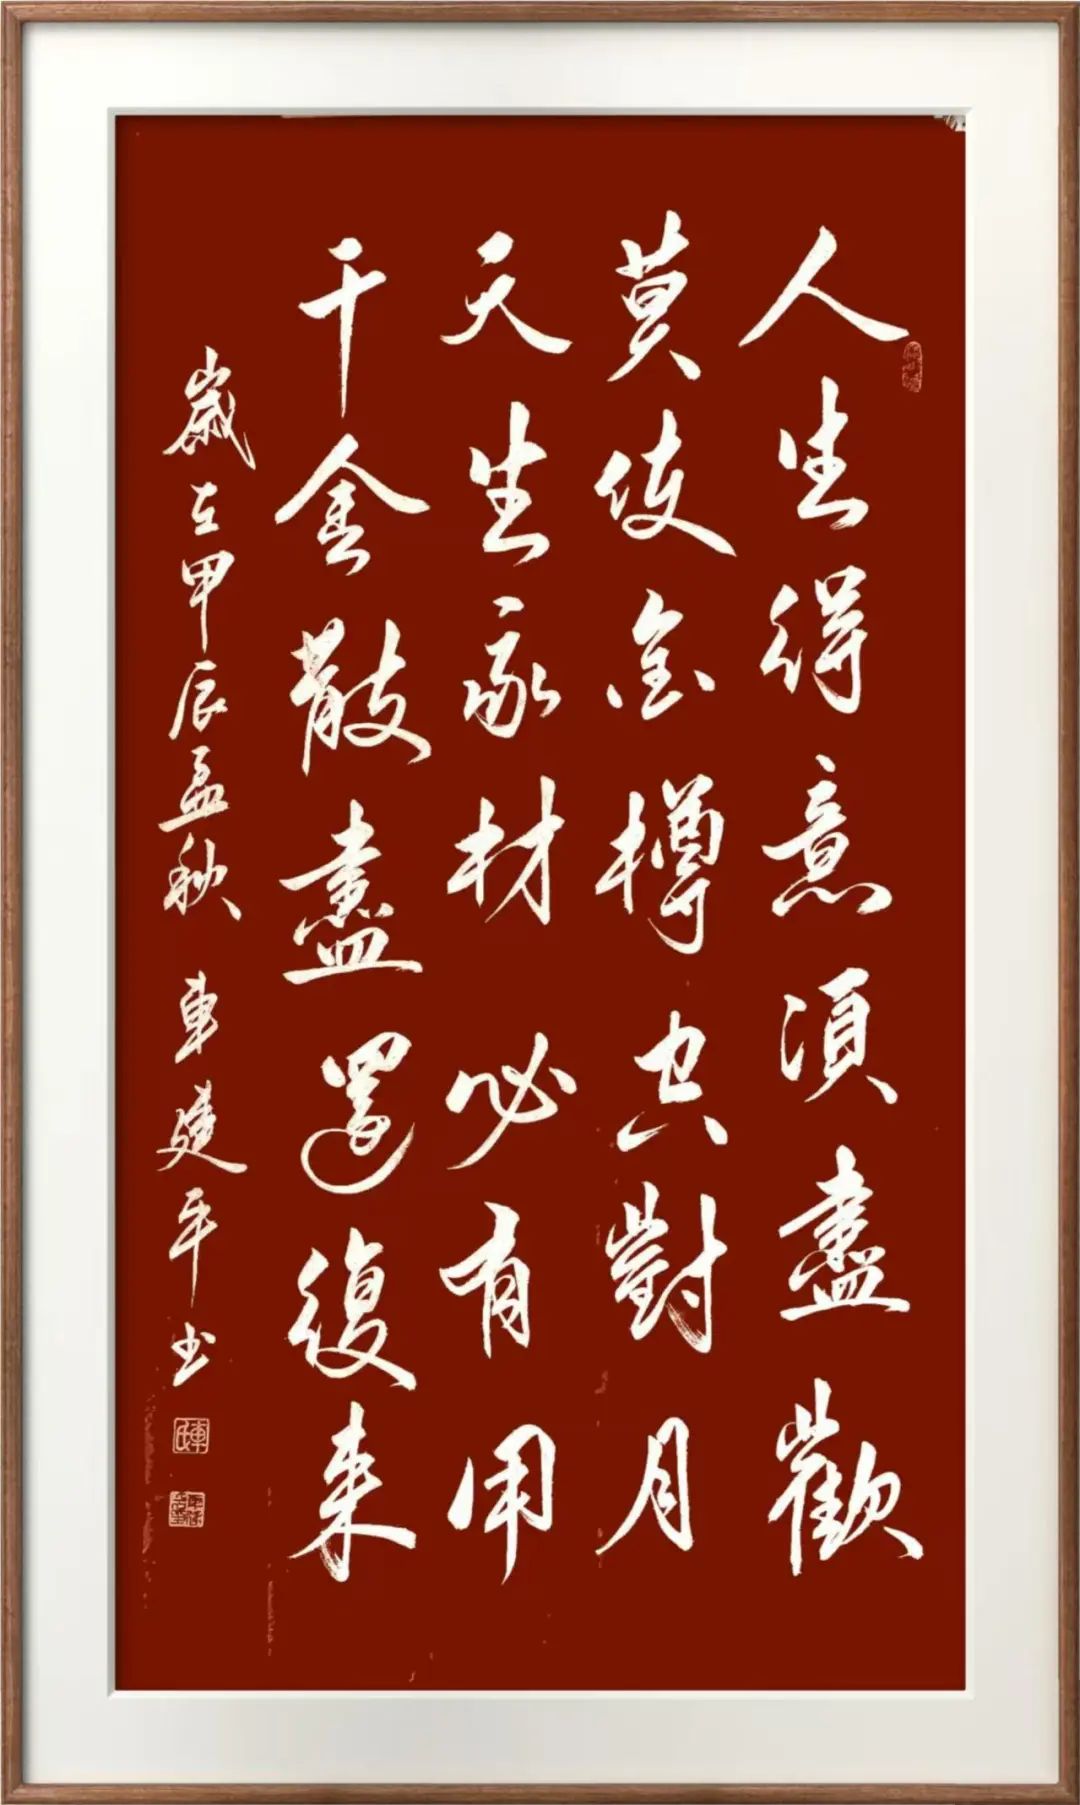 人生得意須盡歡
莫使金樽空對月
天生我材必有用
千金散盡還復来
歲在甲辰孟秋 車建平书